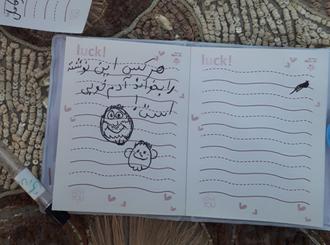 luck!
luck!
هر کس این نوشته
را بخواند ادم خوبی
است!